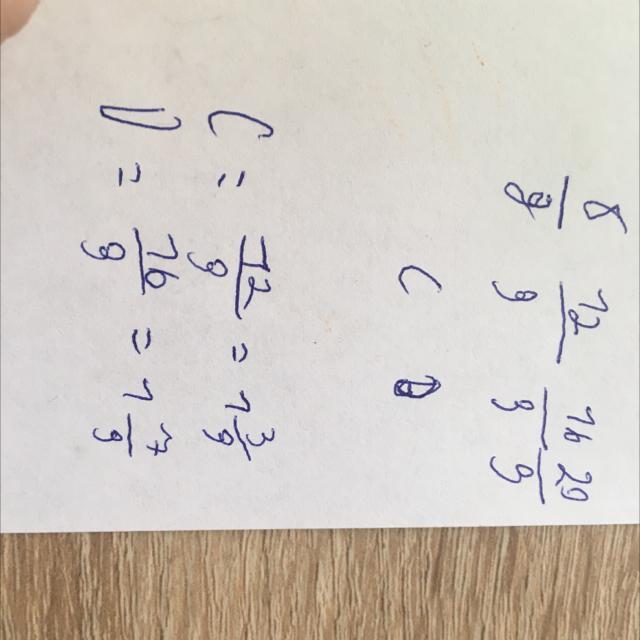 8/9 12/9 16/9 20/9
C D
C = 12/9 = 1 3/9
D = 16/9 = 1 7/9